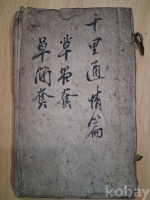 千里通情篇
草書套
草簡套
kobay